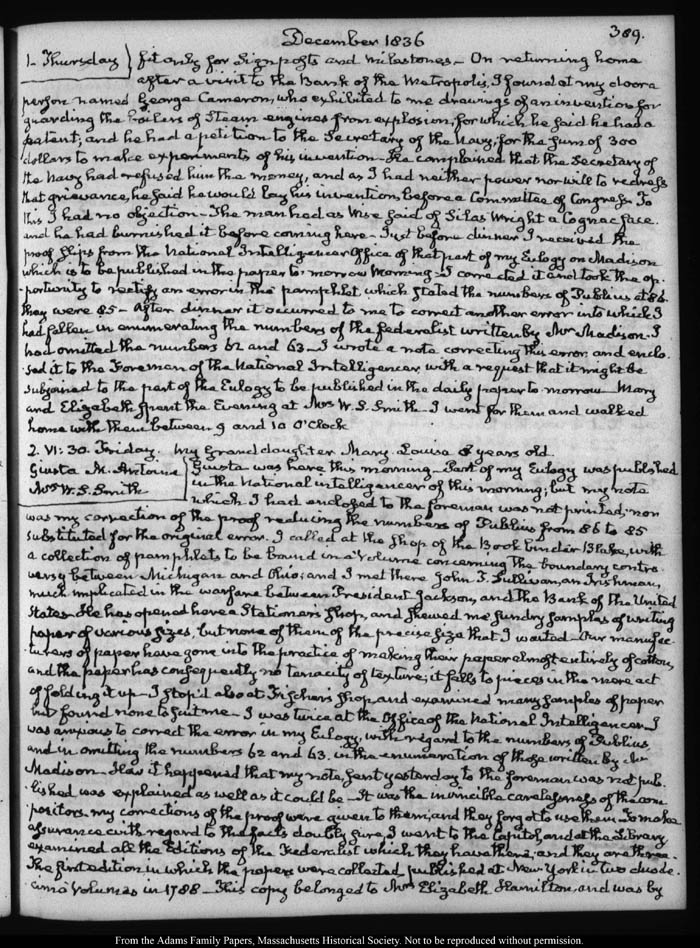 389.
December 1836
1. Thursday} fit only for signposts and milestones — On returning home
after a visit to the Bank of the Metropolis, I found at my door a
person named George Cameron, who exhibited to me drawings of an invention for
guarding the boilers of Steam engines from explosion, for which he said he had a
patent; and he had a petition to the Secretary of the Navy, for the sum of 300
dollars to make experiments of his invention — He complained that the Secretary of
the Navy had refused him the money, and as I had neither power nor will to redress
that grievance, he said he would lay his invention before a Committee of Congress To
this I had no objection — The man had as Wise said of Silas Wright a Cognac face.
and he had burnished it before coming here — Just before dinner I received the
proof slips from the National Intelligencer Office of that part of my Eulogy on Madison
which is to be published in the paper to-morrow Morning — I corrected it and took the op-
portunity to rectify an error in the pamphlet which stated the numbers of Publius at 86.
they were 85 — After dinner it occurred to me to correct another error into which I
had fallen in enumerating the numbers of the federalist written by Mr Madison. I
had omitted the numbers 62 and 63 — I wrote a note correcting this error and enclo-
sed it to the Foreman of the National Intelligencer with a request that it might be
subjoined to the part of the Eulogy to be published in the daily paper to-morrow — Mary
and Elizabeth spent the Evening at Mrs W. S. Smith — I went for them and walked
home with them between 9 and 10 O'Clock
2. VI:30. Friday. My Granddaughter Mary Louisa 8 years old.
Giusta M. Antoine
Mrs W. S. Smith
Giusta was here this morning — Part of my Eulogy was published
in the National intelligencer of this morning; but my note
which I had enclosed to the foreman was not printed, nor
was my correction of the proof reducing the numbers of Publius from 86 to 85
substituted for the original error. I called at the shop of the Book binder Blake, with
a collection of pamphlets to be bound in a Volume concerning the boundary contro-
versy between Michigan and Ohio; and I met there John T. Sullivan, an Irishman,
much implicated in the warfare between President Jackson, and the Bank of the United
States — He has opened here a Stationer's shop, and shewed me sundry samples of writing
paper of various sizes, but none of them of the precise size that I wanted — Our manufac-
turers of paper have gone into the practice of making their paper almost entirely of cotton,
and the paper has consequently no tenacity of texture; it falls to pieces in the mere act
of folding it up — I stop'd also at Fischer's shop and examined many samples of paper
but found none to suit me — I was twice at the Office of the National Intelligencer — I
was anxious to correct the error in my Eulogy, with regard to the numbers of Publius,
and in omitting the numbers 62 and 63. in the enumeration of those written by Mr
Madison — How it happened that my note, sent yesterday to the foreman was not pub-
lished was explained as well as it could be — It was the invincible carelessness of the com-
positors. my corrections of the proof were given to them, and they forgot to use them. To make
assurance with regard to the facts doubly sure, I went to the Capitol, and at the Library
examined all the Editions of the Federalist which they have there, and they are three —
The first edition in which the papers were collected published at New York in two duode-
cimo Volumes in 1788 — This copy belonged to Mrs Elizabeth Hamilton, and was by
From the Adams Family Papers, Massachusetts Historical Society. Not to be reproduced without permission.